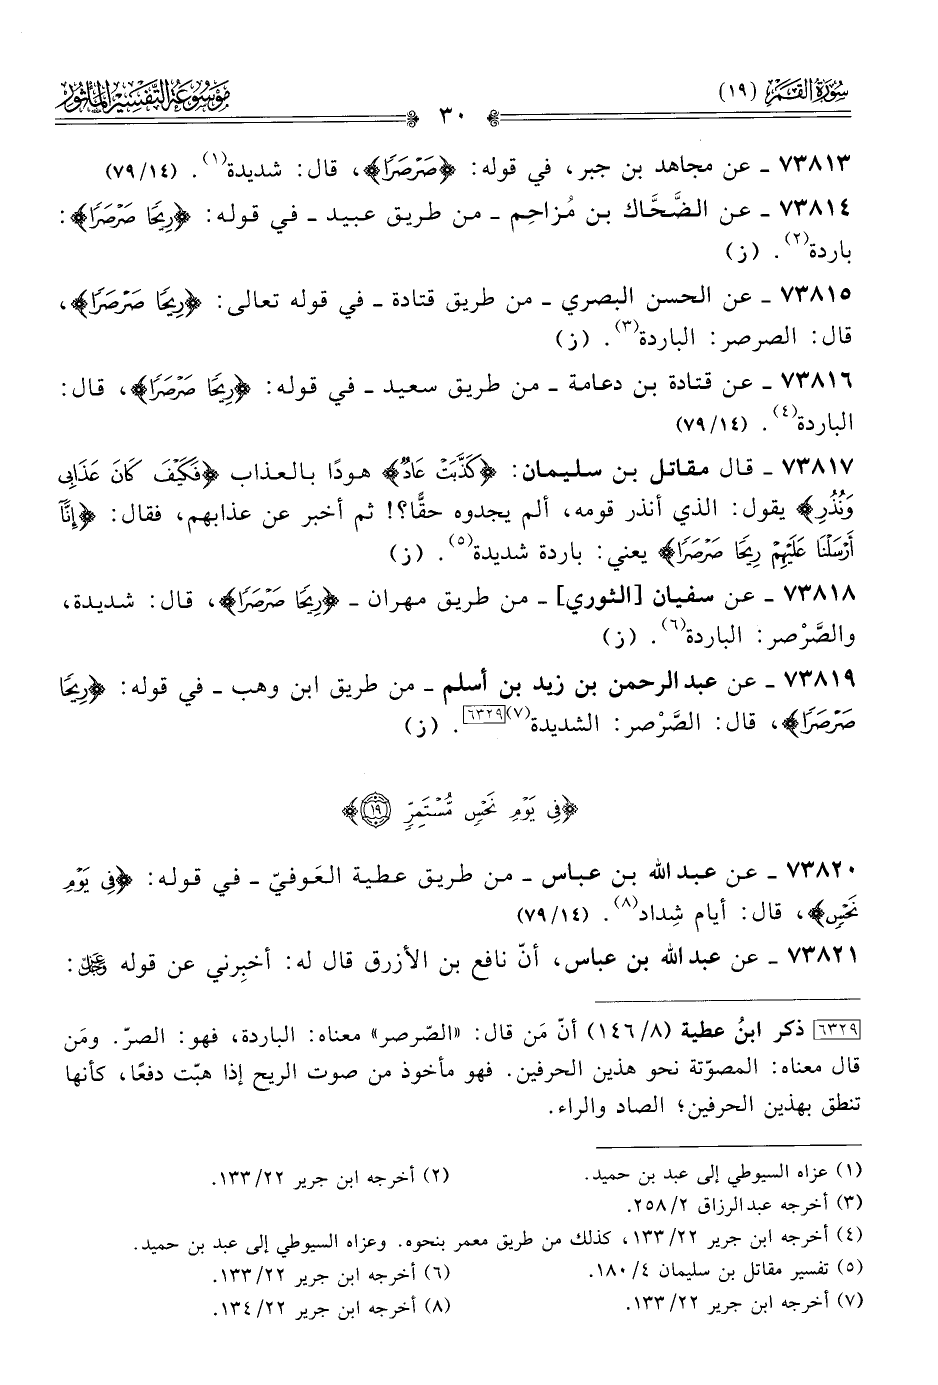 سُورَةُ القَمَر (١٩)
٣٠
مَوْسُوعَة التَّفْسِير المَأْثُور
٧٣٨١٣ ـ عن مجاهد بن جبر، في قوله: ﴿صَرْصَرًا﴾، قال: شديدة(١). (١٤/ ٧٩)
٧٣٨١٤ ـ عن الضَّحَّاك بن مُزاحِم ـ من طريق عبيد ـ في قوله: ﴿رِيحًا صَرْصَرًا﴾:
باردة(٢). (ز)
٧٣٨١٥ ـ عن الحسن البصري ـ من طريق قتادة ـ في قوله تعالى: ﴿رِيحًا صَرْصَرًا﴾،
قال: الصرصر: الباردة(٣). (ز)
٧٣٨١٦ ـ عن قتادة بن دعامة ـ من طريق سعيد ـ في قوله: ﴿رِيحًا صَرْصَرًا﴾، قال:
الباردة(٤). (١٤/ ٧٩)
٧٣٨١٧ ـ قال مقاتل بن سليمان: ﴿كَذَّبَتْ عَادٌ﴾ هودًا بالعذاب ﴿فَكَيْفَ كَانَ عَذَابِى
وَنُذُرِ﴾ يقول: الذي أنذر قومه، ألم يجدوه حقًّا؟! ثم أخبر عن عذابهم، فقال: ﴿إِنَّآ
أَرْسَلْنَا عَلَيْهِمْ رِيحًا صَرْصَرًا﴾ يعني: باردة شديدة(٥). (ز)
٧٣٨١٨ ـ عن سفيان [الثوري] ـ من طريق مهران ـ ﴿رِيحًا صَرْصَرًا﴾، قال: شديدة،
والصَّرْصر: الباردة(٦). (ز)
٧٣٨١٩ ـ عن عبدالرحمن بن زيد بن أسلم ـ من طريق ابن وهب ـ في قوله: ﴿رِيحًا
صَرْصَرًا﴾، قال: الصَّرْصر: الشديدة(٧)[٦٣٢٩]. (ز)
﴿فِى يَوْمِ نَحْسٍ مُّسْتَمِرٍّ ١٩﴾
٧٣٨٢٠ ـ عن عبدالله بن عباس ـ من طريق عطية العَوفيّ ـ في قوله: ﴿فِى يَوْمِ
نَحْسٍ﴾، قال: أيام شِداد(٨). (١٤/ ٧٩)
٧٣٨٢١ ـ عن عبدالله بن عباس، أنّ نافع بن الأزرق قال له: أخبِرني عن قوله ﷿:
[٦٣٢٩] ذكر ابنُ عطية (٨/ ١٤٦) أنّ مَن قال: «الصّرصر» معناه: الباردة، فهو: الصرّ. ومَن
قال معناه: المصوّتة نحو هذين الحرفين. فهو مأخوذ من صوت الريح إذا هبّت دفعًا، كأنها
تنطق بهذين الحرفين؛ الصاد والراء.
(١) عزاه السيوطي إلى عبد بن حميد.
(٢) أخرجه ابن جرير ٢٢/ ١٣٣.
(٣) أخرجه عبدالرزاق ٢/ ٢٥٨.
(٤) أخرجه ابن جرير ٢٢/ ١٣٣، كذلك من طريق معمر بنحوه. وعزاه السيوطي إلى عبد بن حميد.
(٥) تفسير مقاتل بن سليمان ٤/ ١٨٠.
(٦) أخرجه ابن جرير ٢٢/ ١٣٣.
(٧) أخرجه ابن جرير ٢٢/ ١٣٣.
(٨) أخرجه ابن جرير ٢٢/ ١٣٤.